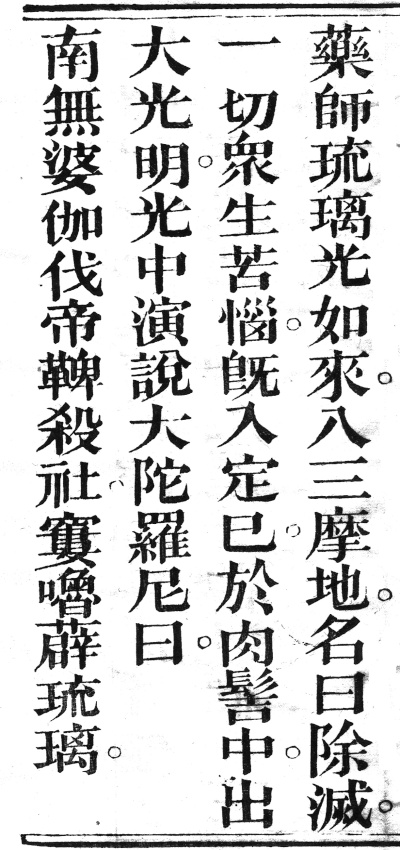 藥師琉璃光如來。入三摩地。名曰除滅。
一切衆生苦惱。旣入定已。於肉髻中。出
大光明。光中演說大陀羅尼曰。
南無婆伽伐帝鞞殺社。窶嚕薜琉璃。